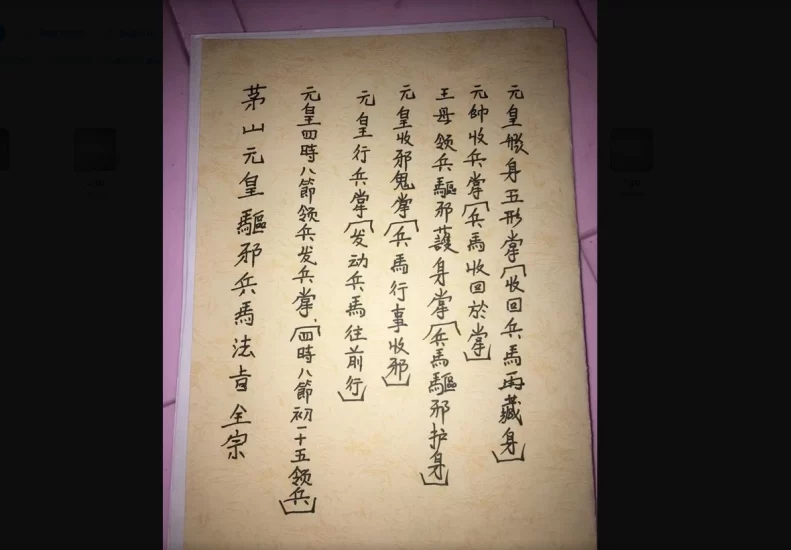 元皇身五形掌[收回兵馬再藏身]
元帥收兵掌[兵馬收回於掌]
王母领兵驅邪護身掌[兵馬驅邪护身]
元皇收邪鬼掌[兵馬行事收邪]
元皇行兵掌[发动兵馬往前行]
元皇四時八節领兵发兵掌,[四時八節初一十五领兵]
茅山元皇驅邪兵馬法旨全宗